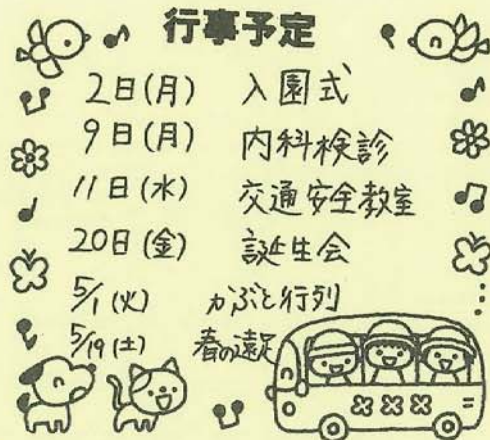 行事予定
2日(月) 入園式
9日(月) 内科検診
11日(水) 交通安全教室
20日(金) 誕生会
5/1(火) かぶと行列
5/19(土) 春の遠足